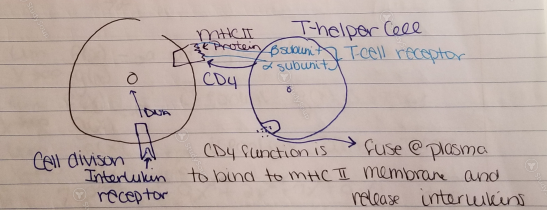 T-helper Cell
MHC II
& Protein
β subunit
α subunit
T-cell receptor
CD4
DNA
Cell divison
Interlukin
receptor
CD4 function is
to bind to MHC II
fuse @ plasma
membrane and
release interlukins